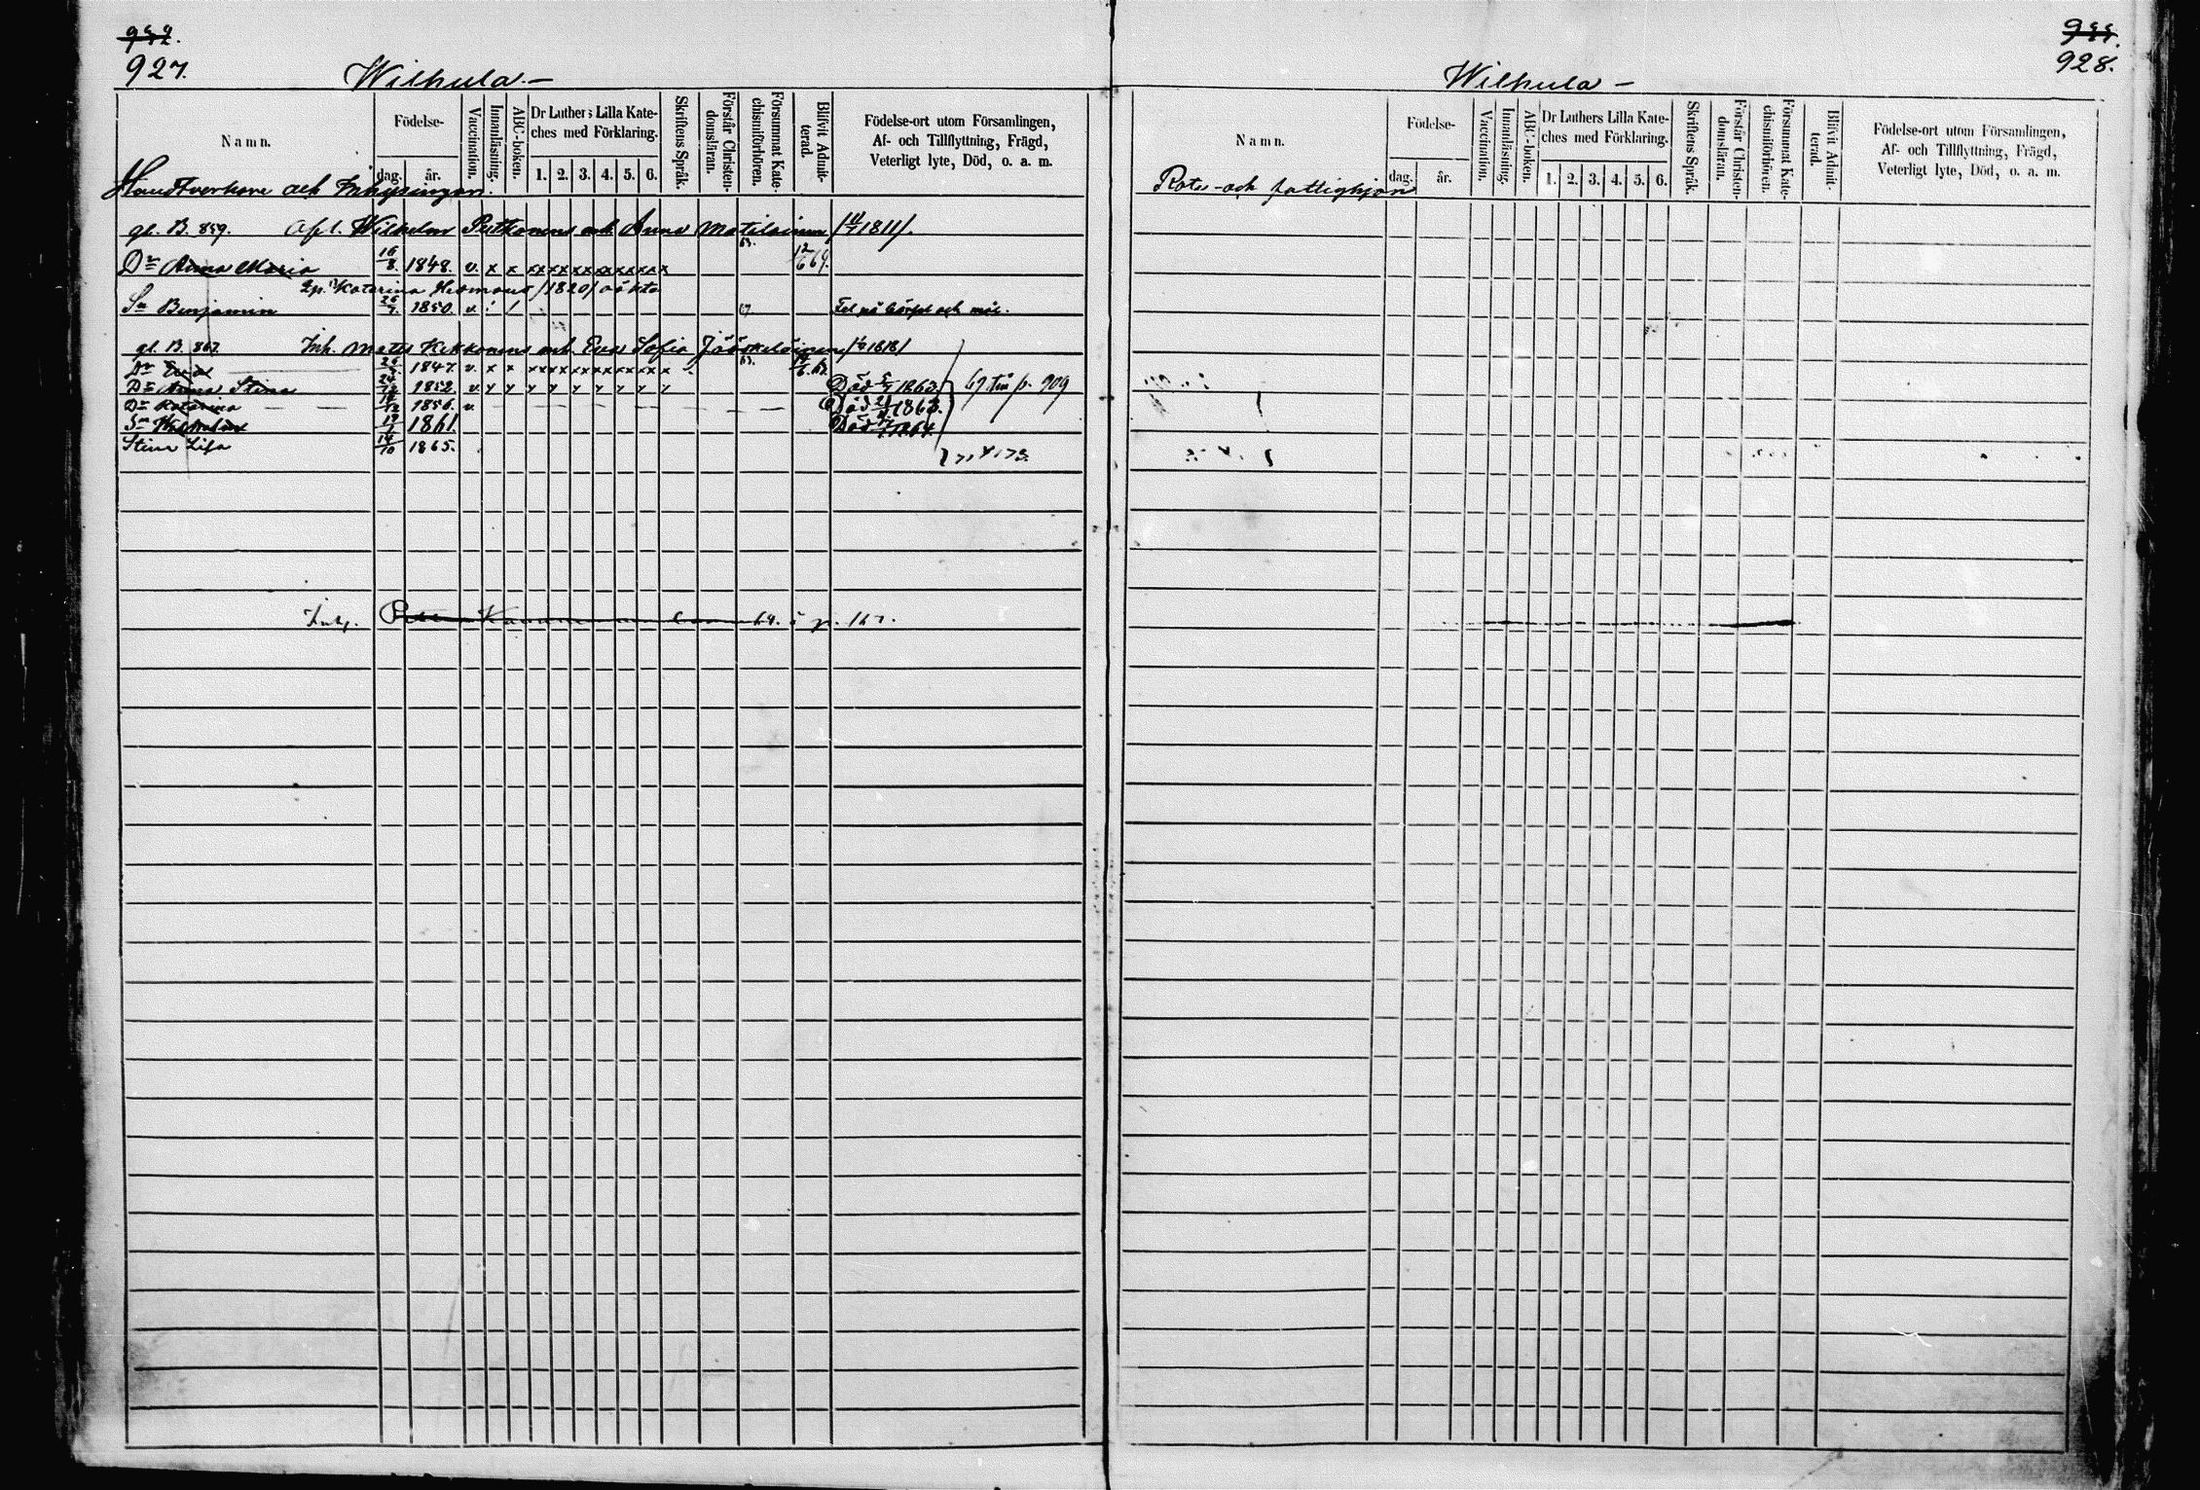 927.
Wilhula.—
Namn.
Födelse-
dag. år.
Vaccination.
Innanläsning.
ABC-boken.
Dr Luthers Lilla Kate-
ches med Förklaring.
1. 2. 3. 4. 5. 6.
Skriftens Språk.
Förstår Christen-
domsläran.
Försummat Kate-
chismiförhören.
Blifvit Admit-
terad.
Födelse-ort utom Församlingen,
Af- och Tillflyttning, Frägd,
Veterligt lyte, Död, o. a. m.
Handtverkare och Inhysingar.
gl. B. 859. Afl. Wilhelm Putkonens och Anna Matilainen /1811/.
Dr Anna Maria 16/8. 1848. v. x x xx xx xx xx xx xx 63. 12/6 69.
Katarina /1820/ oäkta
Sn Benjamin 25/7. 1850. v. / / 67 Fel på hörsel och mål.
gl. B. 867. Inh. Mats Kekkonens och Eva Sofia Jääskeläinen /1818/
Dr 1847. v. x x xx xx xx xx xx xx 63.
Dr Anna Stina 1852. v. y y y y y y y y Död 1863.
69. p. 909
Dr Katarina 1856. v. Död 1863.
Sn 1861. Död 1864.
Stina Lisa 14/10 1865.
Inh. 69. p. 167.
928.
Wilhula —
Namn.
Födelse-
dag. år.
Vaccination.
Innanläsning.
ABC-boken.
Dr Luthers Lilla Kate-
ches med Förklaring.
1. 2. 3. 4. 5. 6.
Skriftens Språk.
Förstår Christen-
domsläran.
Försummat Kate-
chismiförhören.
Blifvit Admit-
terad.
Födelse-ort utom Församlingen,
Af- och Tillflyttning, Frägd,
Veterligt lyte, Död, o. a. m.
Rote- och fattighjon